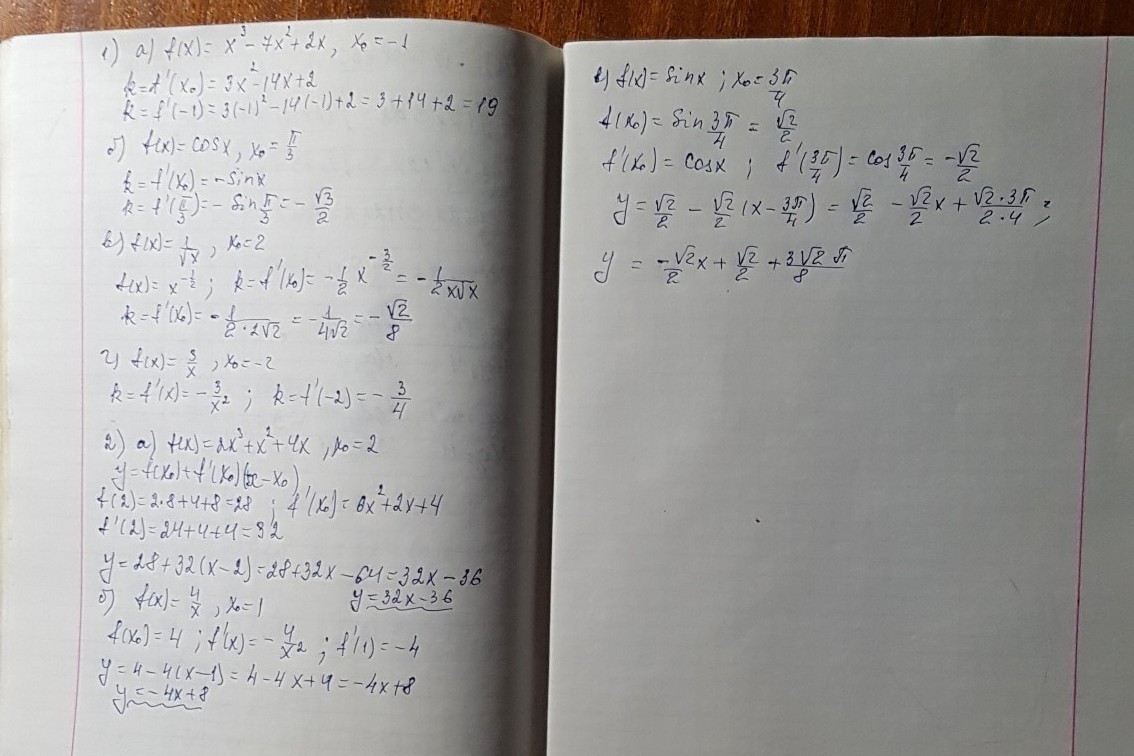 1) а) f(x) = x³ - 7x² + 2x, x₀ = -1
k = f'(x₀) = 3x² - 14x + 2
k = f'(-1) = 3(-1)² - 14(-1) + 2 = 3 + 14 + 2 = 19
б) f(x) = cosx, x₀ = π/3
k = f'(x₀) = -sinx
k = f'(π/3) = -sin π/3 = -√3/2
в) f(x) = 1/√x, x₀ = 2
f(x) = x^(-1/2); k = f'(x₀) = -1/2 x^(-3/2) = -1/(2x√x)
k = f'(x₀) = -1/(2·2√2) = -1/(4√2) = -√2/8
г) f(x) = 3/x, x₀ = -2
k = f'(x) = -3/x²; k = f'(-2) = -3/4
2) а) f(x) = 2x³ + x² + 4x, x₀ = 2
y = f(x₀) + f'(x₀)(x - x₀)
f(2) = 2·8 + 4 + 8 = 28; f'(x₀) = 6x² + 2x + 4
f'(2) = 24 + 4 + 4 = 32
y = 28 + 32(x - 2) = 28 + 32x - 64 = 32x - 36
y = 32x - 36
б) f(x) = 4/x, x₀ = 1
f(x₀) = 4; f'(x) = -4/x²; f'(1) = -4
y = 4 - 4(x - 1) = 4 - 4x + 4 = -4x + 8
y = -4x + 8
в) f(x) = sinx; x₀ = 3π/4
f(x₀) = sin 3π/4 = √2/2
f'(x₀) = cosx; f'(3π/4) = cos 3π/4 = -√2/2
y = √2/2 - √2/2 (x - 3π/4) = √2/2 - √2/2 x + (√2·3π)/(2·4);
y = -√2/2 x + √2/2 + 3√2π/8